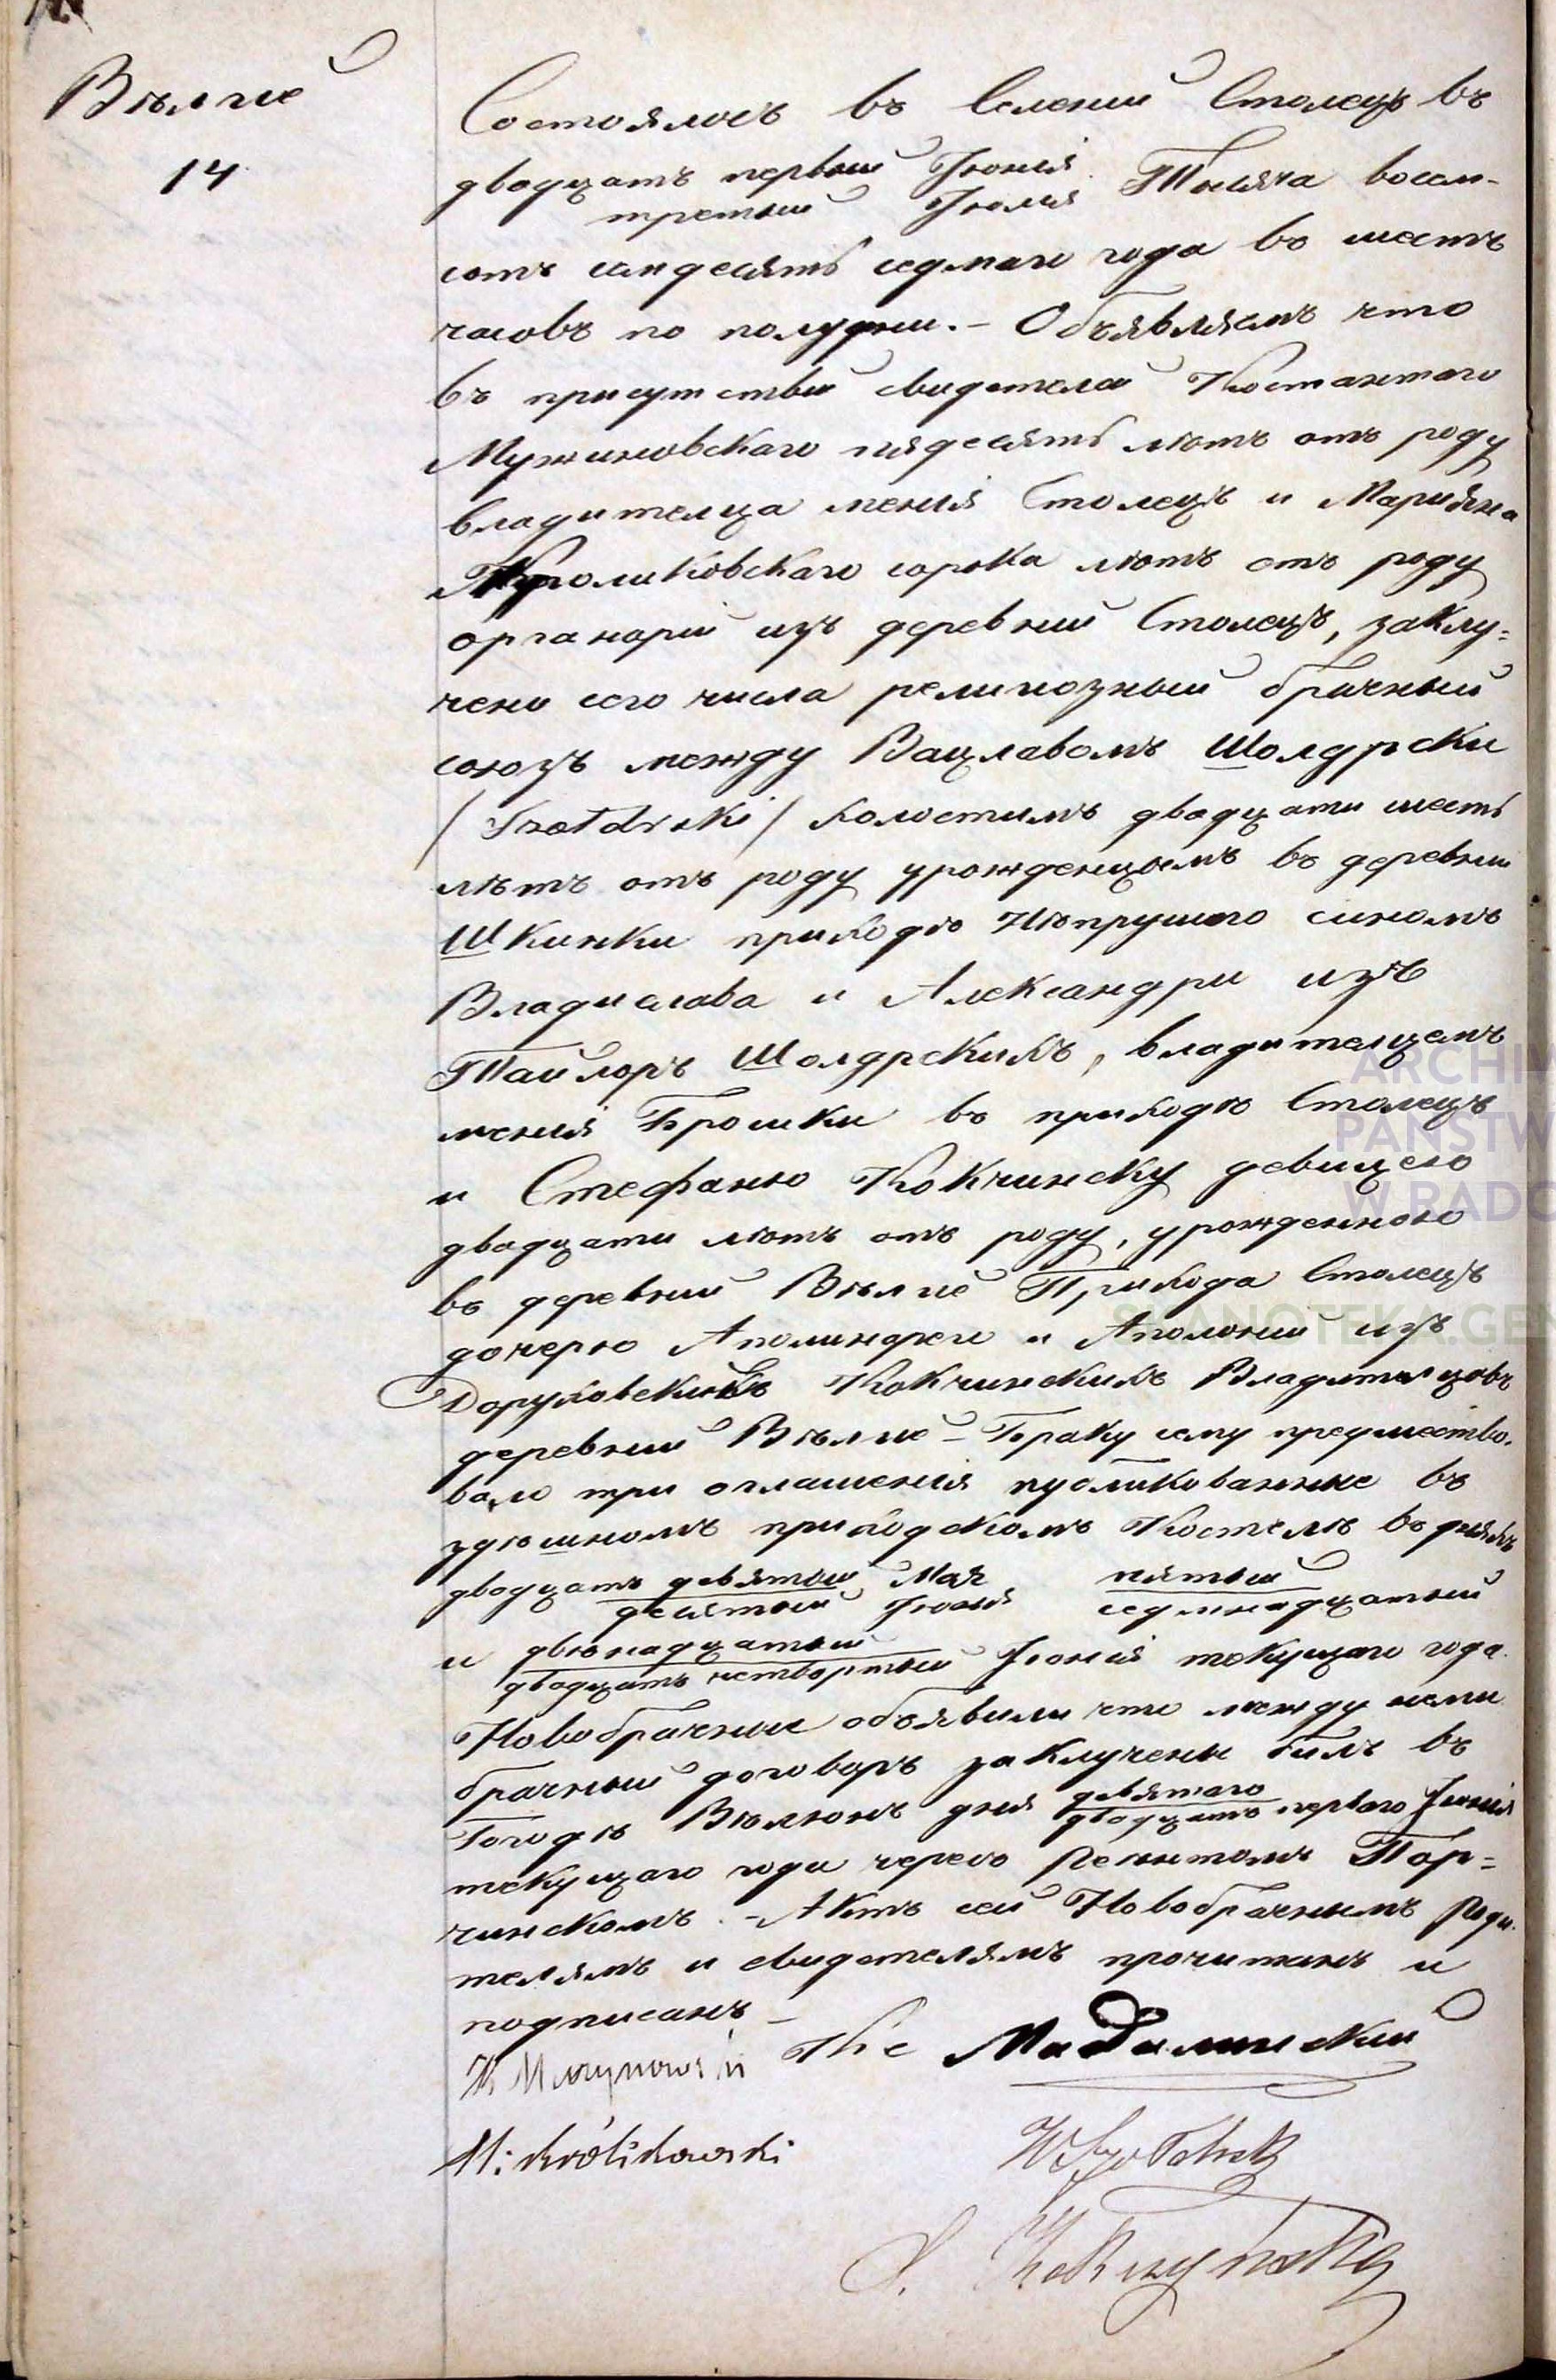 Вѣлгіе
14
Состоялось въ Селеніи Столецъ въ
двадцать первый Іюнія
третьій Іюлія Тысяча восем-
сотъ семдесятъ седмаго года въ шесть
часовъ по полудни. - Объявляемъ что
въ присутствіи свидетелей Костантаго
Мужиновскаго пядесятъ лѣтъ отъ роду
владителца менія Столецъ и Маріяна
Кроликовскаго сорока лѣтъ отъ роду
органарій изъ деревній Столецъ, заклу=
чени сего числа религіозный брачный
союзъ между Вацлавомъ Шолдрски
/Szołdrski/ холостимъ двадцати шесть
лѣтъ отъ роду урожденцомъ въ деревни
синомъ
Владислава и Александри изъ
Тайлоръ Шолдрскихъ, владителцемъ
менія Брошки въ приходѣ Столецъ
и Стефаню Кокчинску девицею
двадцати лѣтъ отъ роду, урожденною
въ деревній Вѣлгіе Прихода Столецъ
дочерю Аполинарего и Аполоній изъ
Доруховскихъ Кокчинскихъ Владителцовъ
деревній Вѣлгіе - Браку сему предшество-
вало три оглашенія публикованние въ
здѣшномъ приходскомъ Костелѣ въ дняхъ
двадцать девятый Мая пятый
десятый Іюнія седмнадцатый
и двѣнадцатый
двадцать четвортый Іюнія текущаго года.
Новобрачные объявили что между ними
брачный договоръ заклученъ билъ въ
Городѣ Вѣлюнѣ дня девятаго
двадцать перваго Іюнія
текущаго года черезъ Реентомъ Пор=
чинскомъ. - Актъ сей Новобрачнымъ Роди-
телямъ и свидетелямъ прочитанъ и
подписанъ -
Кс Мадалинскій
M: Królikowski